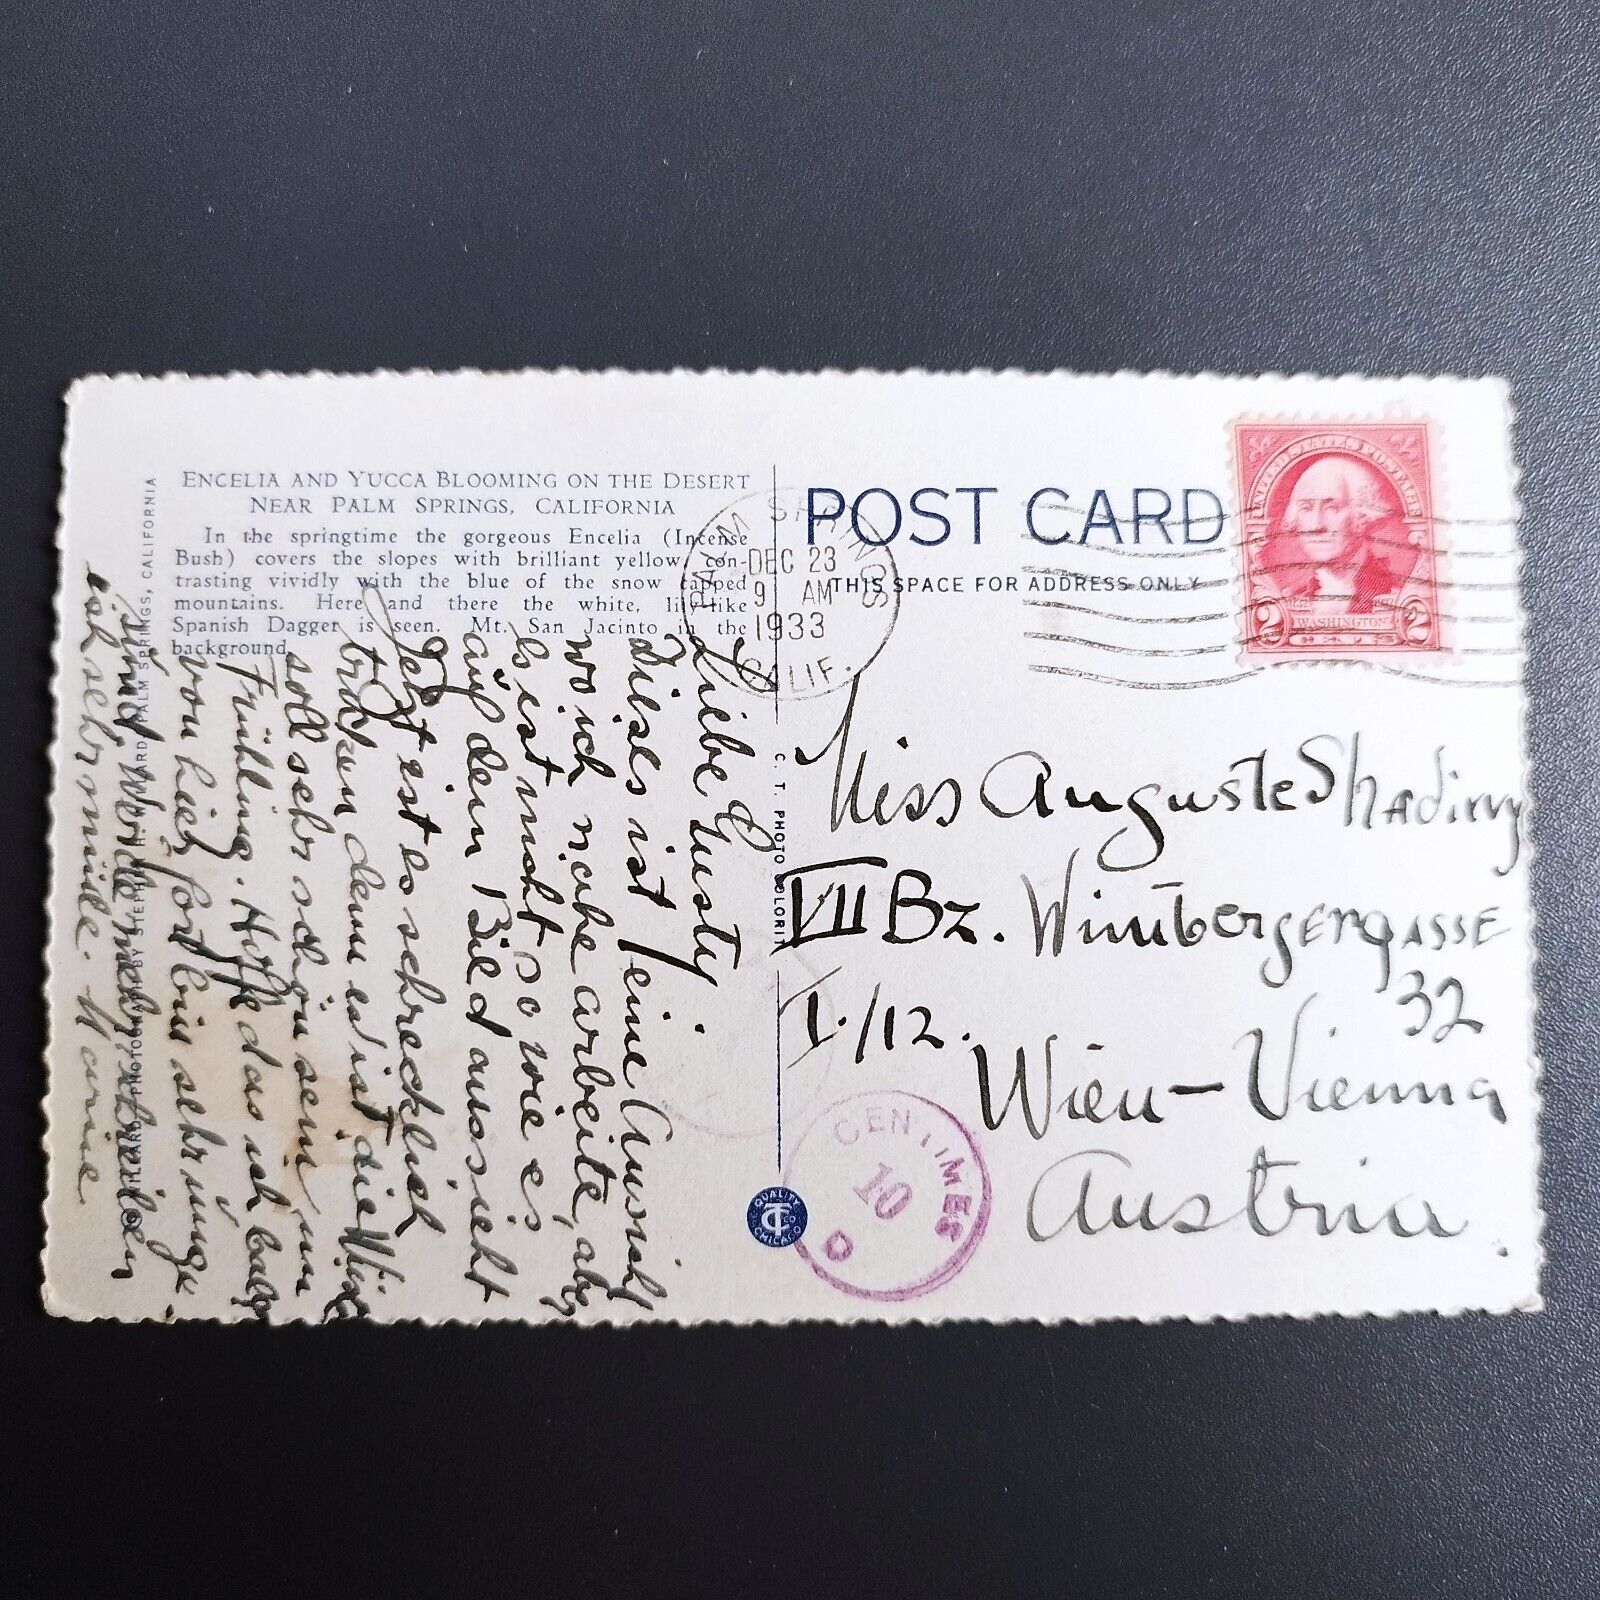 ENCELIA AND YUCCA BLOOMING ON THE DESERT
NEAR PALM SPRINGS, CALIFORNIA
In the springtime the gorgeous Encelia (Incense
Bush) covers the slopes with brilliant yellow, con-
trasting vividly with the blue of the snow capped
mountains. Here and there the white, lily-like
Spanish Dagger is seen. Mt. San Jacinto in the
background.
PHOTOGRAPH BY STEPHEN H. WILLARD, PALM SPRINGS, CALIFORNIA
Liebe Gusty.
Dieses ist eine Ansicht
wo ich nahe arbeite, aber
es ist nicht so wie es
auf dem Bild aussieht
Jetzt ist es schrecklich
trocken denn es ist die
soll sehr schön sein im
Frühling. Hoffe das ich bald
von hier fort bin sehr
und werde mehr schreiben
ich sehr müde.
PALM SPRINGS
DEC 23
9 AM
1933
CALIF.
POST CARD
THIS SPACE FOR ADDRESS ONLY
UNITED STATES POSTAGE
WASHINGTON
2 CENTS 2
C. T. PHOTO COLORIT
QUALITY
CT CO
CHICAGO
Miss Auguste
VII Bz. Wimbergergasse
32
I./12.
Wien - Vienna
Austria.
CENTIMES
10
O